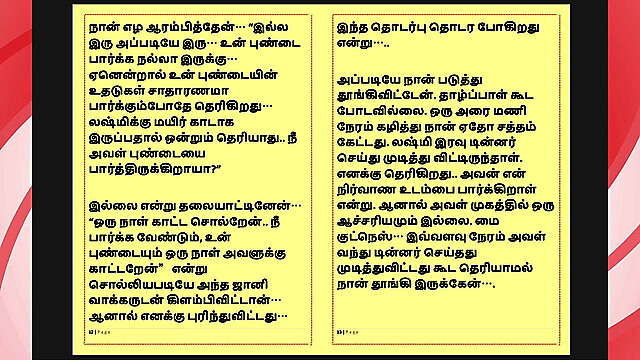 நான் எழ ஆரம்பித்தேன்… “இல்ல
இரு அப்படியே இரு… உன் புண்டை
பார்க்க நல்லா இருக்கு…
ஏனென்றால் உன் புண்டையின்
உதடுகள் சாதாரணமா
பார்க்கும்போதே தெரிகிறது…
லஷ்மிக்கு மயிர் காடாக
இருப்பதால் ஒன்றும் தெரியாது.. நீ
அவள் புண்டையை
பார்த்திருக்கிறாயா?”
இல்லை என்று தலையாட்டினேன்…
“ஒரு நாள் காட்ட சொல்றேன்.. நீ
பார்க்க வேண்டும், உன்
புண்டையும் ஒரு நாள் அவளுக்கு
காட்டறேன்” என்று
சொல்லியபடியே அந்த ஜானி
வாக்கருடன் கிளம்பிவிட்டான்…
ஆனால் எனக்கு புரிந்துவிட்டது…
12 | Page
இந்த தொடர்பு தொடர போகிறது
என்று…..
அப்படியே நான் படுத்து
தூங்கிவிட்டேன். தாழ்ப்பாள் கூட
போடவில்லை. ஒரு அரை மணி
நேரம் கழித்து நான் ஏதோ சத்தம்
கேட்டது. லஷ்மி இரவு டின்னர்
செய்து முடித்து விட்டிருந்தாள்.
எனக்கு தெரிகிறது.. அவன் என்
நிர்வாண உடம்பை பார்க்கிறாள்
என்று. ஆனால் அவள் முகத்தில் ஒரு
ஆச்சரியமும் இல்லை. மை
குட்நெஸ்… இவ்வளவு நேரம் அவள்
வந்து டின்னர் செய்தது
முடித்துவிட்டது கூட தெரியாமல்
நான் தூங்கி இருக்கேன்….
13 | Page